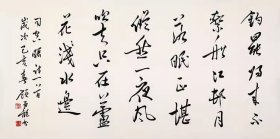 釣罷归来不
繫船江邨月
落眠正堪
縱然一夜風
吹去只在蘆
花淺水邊
司空曙詩一首
歲次己亥春顧亞龍書